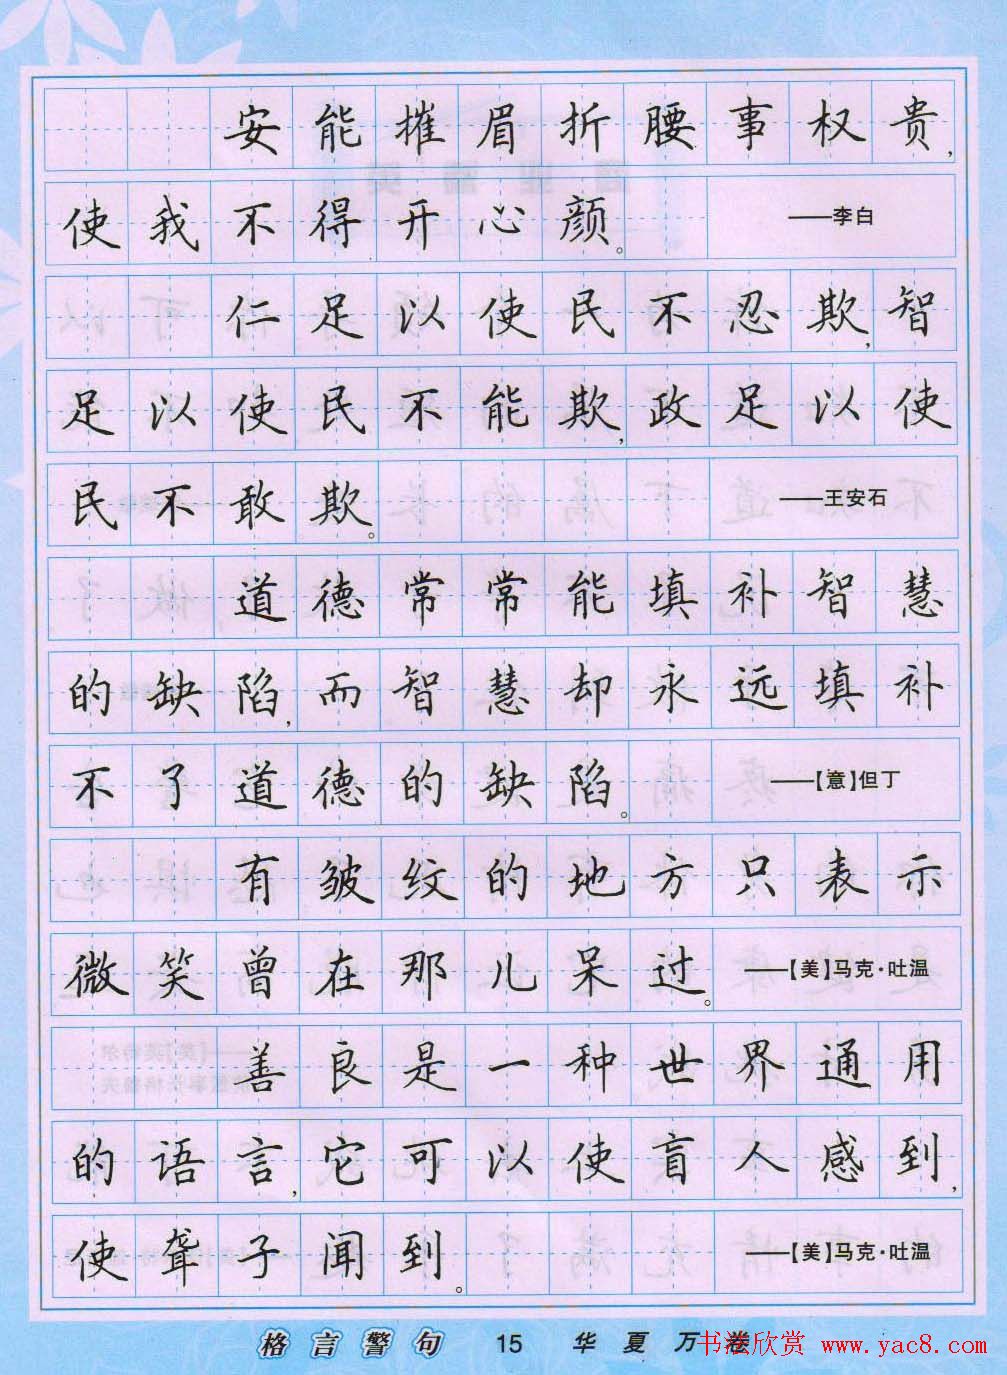 安能摧眉折腰事权贵，
使我不得开心颜。 ——李白
仁足以使民不忍欺，智
足以使民不能欺，政足以使
民不敢欺。 ——王安石
道德常常能填补智慧
的缺陷，而智慧却永远填补
不了道德的缺陷。 ——【意】但丁
有皱纹的地方只表示
微笑曾在那儿呆过。 ——【美】马克·吐温
善良是一种世界通用
的语言，它可以使盲人感到，
使聋子闻到。 ——【美】马克·吐温
格言警句 15 华夏万卷
书法欣赏 www.yac8.com